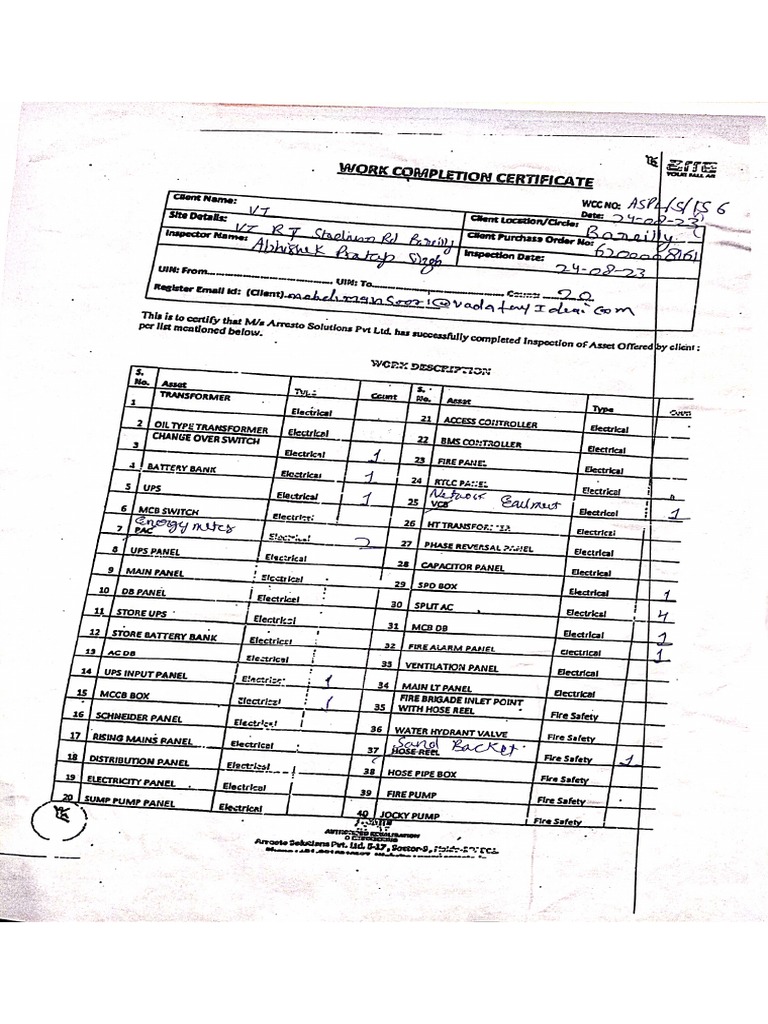 ZIIE
YOUR FALL AR
WORK COMPLETION CERTIFICATE
WCC NO: ASPL/S/
Date: 24-08-23
Client Name: VI
Client Location/Circle: Bareilly
Site Details: VI R J Stadium Rd Bareilly
Client Purchase Order No: 6200008161
Inspector Name: Abhishek Pratap Singh
Inspection Date: 24-08-23
UIN: From UIN: To 20
Register Email Id: (Client)
This is to certify that M/s Arresto Solutions Pvt Ltd. has successfully completed Inspection of Asset Offered by client :
per list mentioned below.
WORK DESCRIPTION
S. No. Asset Type Count S. No. Asset Type Count
1 TRANSFORMER Electrical 21 ACCESS CONTROLLER Electrical
2 OIL TYPE TRANSFORMER Electrical 22 BMS CONTROLLER Electrical
3 CHANGE OVER SWITCH Electrical 1 23 FIRE PANEL Electrical
4 BATTERY BANK Electrical 1 24 RTCC PANEL Electrical
5 UPS Electrical 1 25 Network VCB Electrical 1
6 MCB SWITCH Electrical 26 HT TRANSFORMER Electrical
7 Energy meter PAC Electrical 2 27 PHASE REVERSAL PANEL Electrical
8 UPS PANEL Electrical 28 CAPACITOR PANEL Electrical
9 MAIN PANEL Electrical 29 SPD BOX Electrical 1
10 DB PANEL Electrical 30 SPLIT AC Electrical 4
11 STORE UPS Electrical 31 MCB DB Electrical 1
12 STORE BATTERY BANK Electrical 32 FIRE ALARM PANEL Electrical 1
13 AC DB Electrical 33 VENTILATION PANEL Electrical
14 UPS INPUT PANEL Electrical 1 34 MAIN LT PANEL Electrical
15 MCCB BOX Electrical 1 35 FIRE BRIGADE INLET POINT WITH HOSE REEL Fire Safety
16 SCHNEIDER PANEL Electrical 36 WATER HYDRANT VALVE Fire Safety
17 RISING MAINS PANEL Electrical 37 Sand Backet HOSE REEL Fire Safety 1
18 DISTRIBUTION PANEL Electrical 38 HOSE PIPE BOX Fire Safety
19 ELECTRICITY PANEL Electrical 39 FIRE PUMP Fire Safety
20 SUMP PUMP PANEL Electrical 40 JOCKY PUMP Fire Safety
Arresto Solutions Pvt. Ltd.